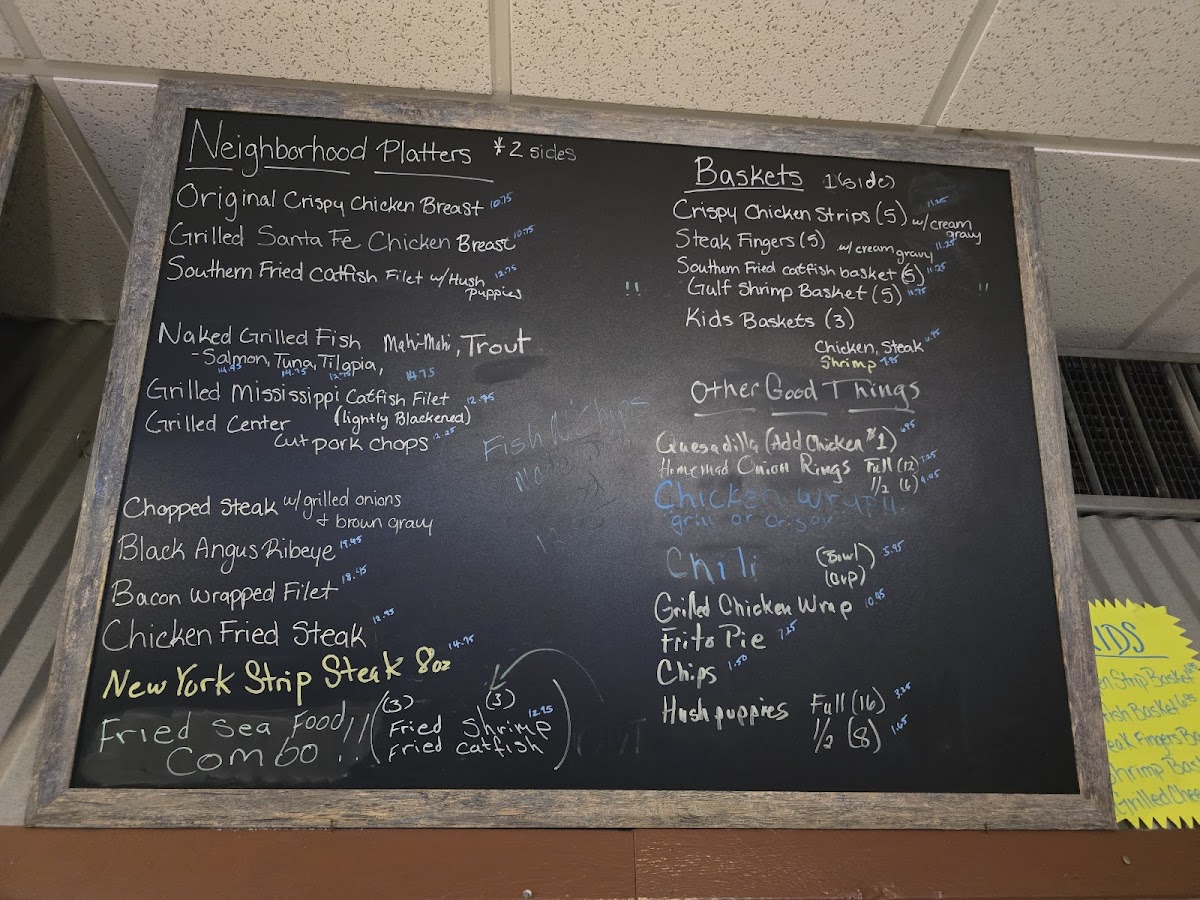 Neighborhood Platters *2 sides
Original Crispy Chicken Breast 10.75
Grilled Santa Fe Chicken Breast 10.75
Southern Fried Catfish Filet w/Hush 12.75
puppies
Naked Grilled Fish Mahi-Mahi, Trout
-Salmon, Tuna, Tilapia,
14.45 14.75 12.75 14.75
Grilled Mississippi Catfish Filet 12.75
Grilled Center (lightly Blackened)
Cut pork chops 12.25
Chopped Steak w/grilled onions
+ brown gravy
Black Angus Ribeye 19.45
Bacon wrapped Filet 18.45
Chicken Fried Steak 12.95
New York Strip Steak 8oz 14.75
Fried Sea Food!!
Combo!!
(3) (3)
Fried Shrimp 12.95
Fried Catfish
Fish N' Chips
Baskets 1(side)
Crispy Chicken Strips (5) w/cream 11.25
gravy
Steak Fingers (5) w/cream gravy 11.25
Southern Fried catfish basket (5) 11.25
!! Gulf Shrimp Basket (5) 11.75 !!
Kids Baskets (3)
Chicken, Steak 6.95
Shrimp 7.95
Other Good Things
Quesadilla (Add Chicken $1) 6.95
Homemad Onion Rings Full (12) 7.25
1/2 (6) 4.45
Chicken Wrap!!
grill or crispy
Chili (Bowl) 5.95
(Cup)
Grilled Chicken Wrap 10.45
Frito Pie 7.25
Chips 1.50
Hush puppies Full (16) 3.25
1/2 (8) 1.65
KIDS
Strip Basket
fish Basket
Fingers
Shrimp
Grilled